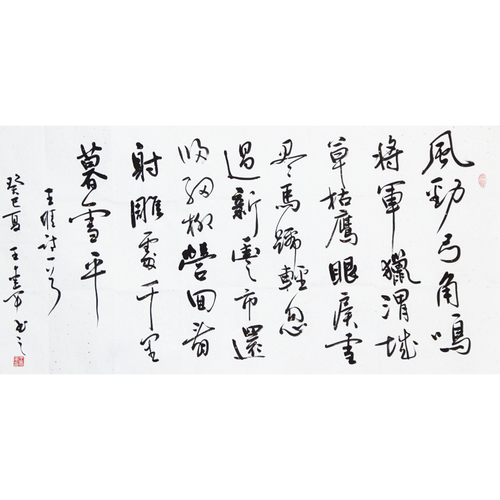 風勁弓角鳴
將軍獵渭城
草枯鷹眼疾雪
盡馬蹄輕忽
過新豐市還
歸細柳營回看
射雕處千里
暮雲平
王維詩一首
癸巳夏 王 軍書之